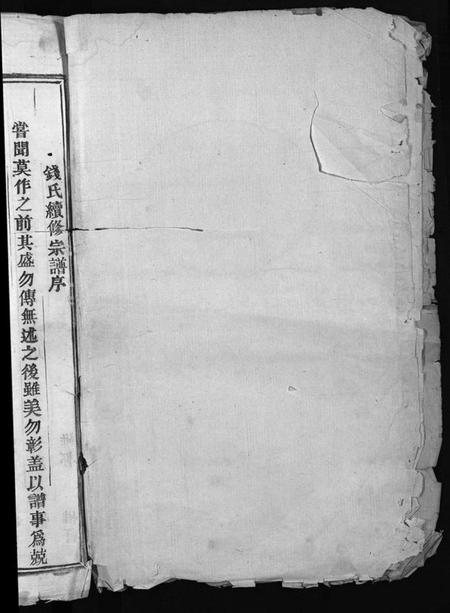 錢氏續修宗譜序
嘗聞莫作之前其盛勿傳無述之後雖美勿彰盖以譜事為兢